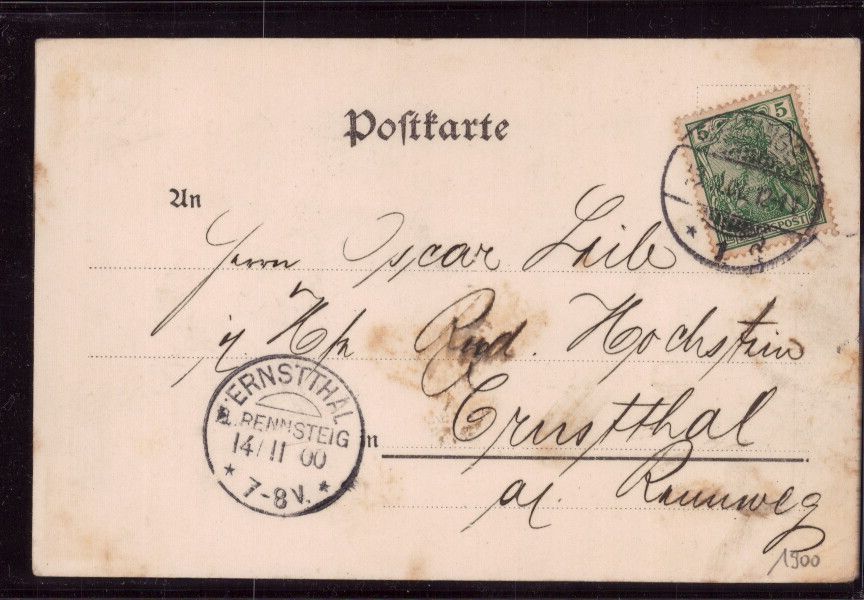 Postkarte
5 5
POST
An
Herrn Oscar Leib
Rud. Hochstein
in Ernstthal
a/. Rennweg
ERNSTTHAL
a. RENNSTEIG
14/11 00
* 7-8V. *
1900